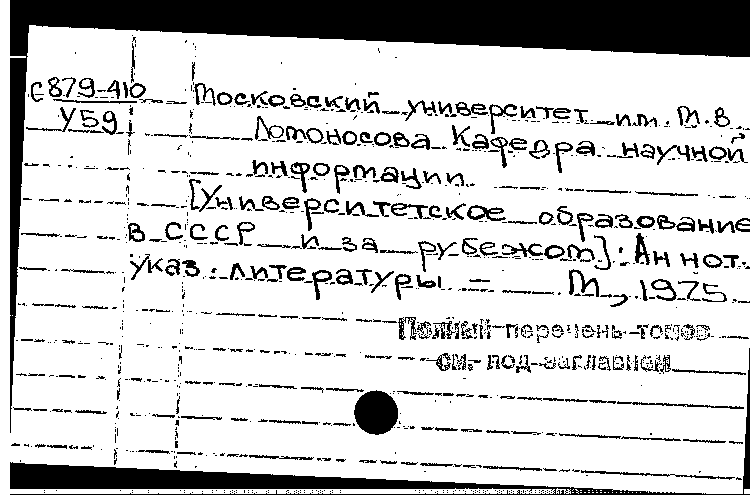 С879-410
У59
Московский университет им. М.В.
Ломоносова Кафедра научной
информации.
[Университетское образование
в СССР и за рубежом]: Аннот.
указ. литературы – М., 1975
Полный перечень томов
см. под заглавием